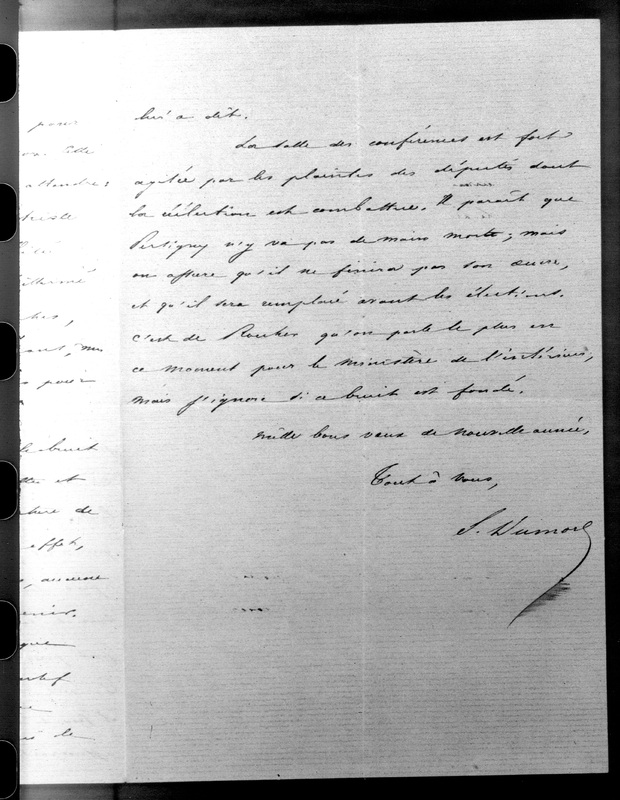 pour
attendre;
pour
le bruit
et
de
effet,
aucune
que
de
lui a dit.
La salle des conférences est fort
agitée par les plaintes des députés dont
la réélection est combattue. Il paraît que
Persigny n'y va pas de main morte; mais
on assure qu'il ne finira pas son œuvre,
et qu'il sera remplacé avant les élections.
C'est de Rouher qu'on parle le plus en
ce moment pour le ministère de l'intérieur,
mais j'ignore si ce bruit est fondé.
Mille bons vœux de nouvelle année,
Tout à vous,
S. Dumon